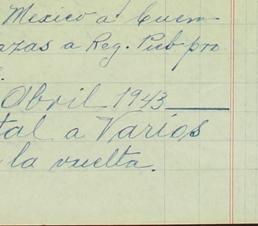 Mexico a Cuern-
azas a Reg. Pub pro
Abril 1943
tal a Varios
la vuelta.